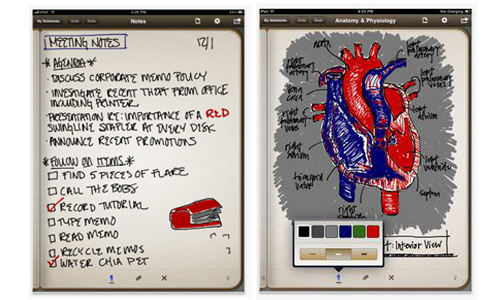 iPad
8:29 PM
My Notebooks
Undo
Redo
Notes
MEETING NOTES
12/1
* AGENDA *
- DISCUSS CORPORATE MEMO POLICY
- INVESTIGATE RECENT THEFT FROM OFFICE
INCLUDING PRINTER
- PRESENTATION RE: IMPORTANCE OF A RED
SWINGLINE STAPLER AT EVERY DESK
- ANNOUNCE RECENT PROMOTIONS
* FOLLOW ON ITEMS *
FIND 5 PIECES OF FLARE
CALL THE BOBS
RECORD TUTORIAL
TYPE MEMO
READ MEMO
RECYCLE MEMOS
WATER CHIA PET
1
2
iPad
8:26 PM
Not Charging
My Notebooks
Undo
Redo
Anatomy & Physiology
aorta
left
pulmonary
artery
right
pulmonary
artery
left
pulmonary
veins
vena
cava
right
pulmonary
veins
left
atrium
right
atrium
left
ventricle
tricuspid
valve
septum
right
: Interior View
1
2